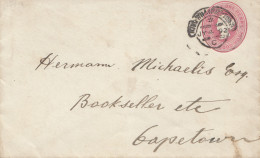 Hermann Michaelis Esq.
Bookseller etc
Capetown